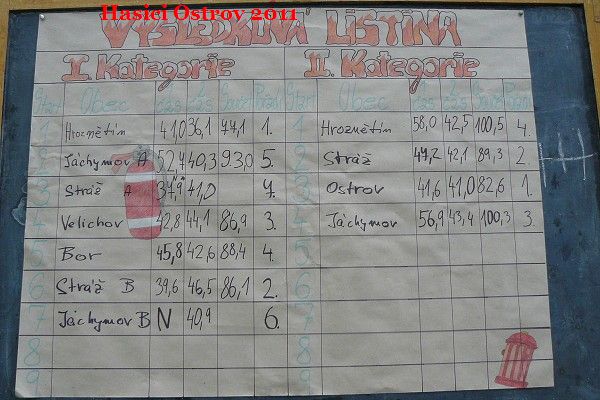 Hasici Ostrov 2011
VÝSLEDKOVÁ LISTINA
I. Kategorie II. Kategorie
Start Obec čas čas Součet Pořadí Start Obec čas čas Součet Pořadí
1 Hroznětín 41,0 36,1 77,1 1. 1 Hroznětín 58,0 42,5 100,5 4.
2 Jáchymov A 52,4 40,3 93,0 5. 2 Stráž 47,2 42,1 89,3 2.
3 Stráž A 41,0 7. 3 Ostrov 41,6 41,0 82,6 1.
4 Velichov 42,8 44,1 86,9 3. 4 Jáchymov 56,9 43,4 100,3 3.
5 Bor 45,8 42,6 88,4 4. 5
6 Stráž B 39,6 46,5 86,1 2. 6
7 Jáchymov B N 40,9 6. 7
8 8
9 9